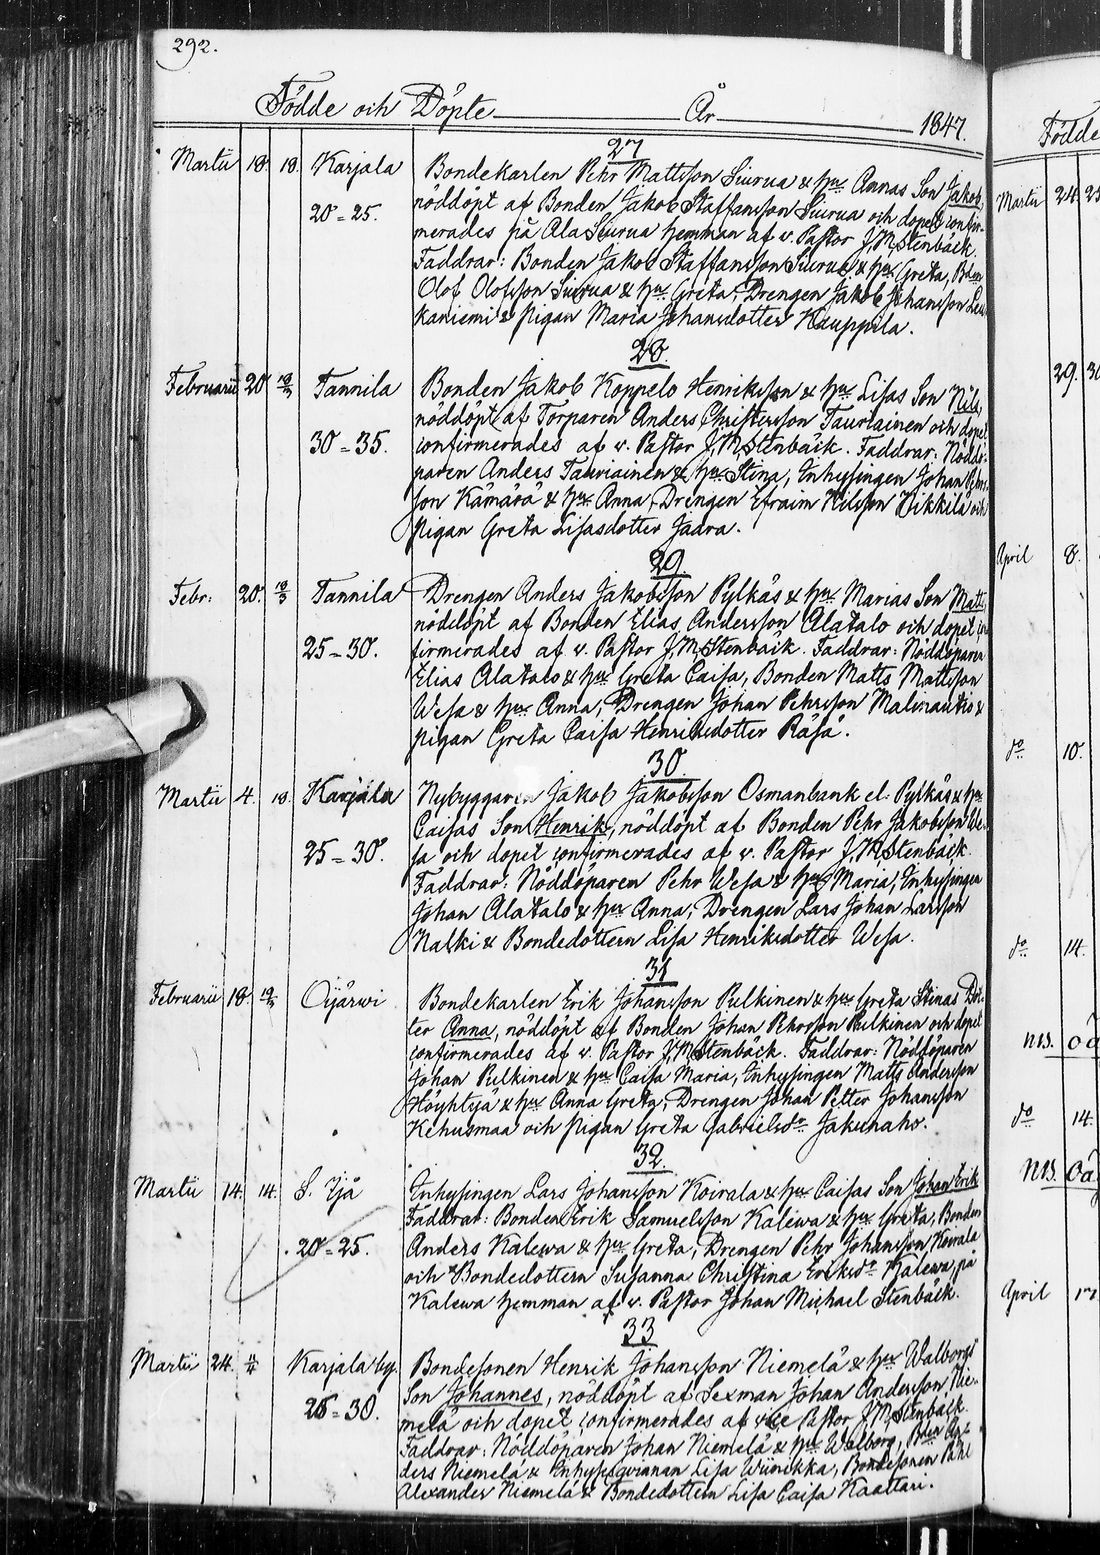 292.
Födde och Döpte År 1847.
27
Martii 18. 18. Karjala Bondekarlen Pehr Mattsson Siurua & hu Annas Son Jakob,
20-25. nöddöpt af Bonden Jakob Staffansson Siurua och dopet confir-
merades på Ala Siurua hemman af v. Pastor J,M,Stenbäck.
Faddrar: Bonden Jakob Staffansson Siurua & hu Greta, Bden
Olof Olofsson Siurua & hu Greta, Drengen Jakob Johansson
kaniemi & pigan Maria Johansdotter Kauppila.
28.
Februarii 20 18/3 Tannila Bonden Jakob Koppelo Henriksson & hu Lisas Son Nils,
nöddöpt af Torparen Anders Christersson Tauriainen och dopet
30-35. confirmerades af v. Pastor J,M,Stenbäck. Faddrar: Nöddö-
paren Anders Tauriainen & hu Stina, Inhysingen Johan
son Kämärä & hu Anna, Drengen Efraim Nilsson Hikkilä och
pigan Greta Lisasdotter Jaara.
29.
Febr: 20. 18/3 Tannila Drengen Anders Jakobsson Pylkäs & hu Marias Son Matts,
nöddöpt af Bonden Elias Andersson Alatalo och dopet con
25-30. firmerades af v. Pastor J,M,Stenbäck. Faddrar: Nöddöparen
Elias Alatalo & hu Greta Caisa, Bonden Matts Mattsson
Wesa & hu Anna, Drengen Johan Pehrsson Malinautio &
pigan Greta Caisa Henriksdotter Räsä.
30.
Martii 4. 18. Karjala Nybyggaren Jakob Jakobsson Osmanbank el. Pylkäs & hu
Caisas Son Henrik, nöddöpt af Bonden Pehr Jakobsson We-
25-30. sa och dopet confirmerades af v. Pastor J,M,Stenbäck.
Faddrar: Nöddöparen Pehr Wesa & hu Maria, Inhysingen
Johan Alatalo & hu Anna, Drengen Lars Johan Larsson
Kalki & Bondedottern Lisa Henriksdotter Wesa.
31
Februarii 18. 19/3 Oijärwi Bondekarlen Erik Johansson Pulkinen & hu Greta Stinas Dot-
ter Anna, nöddöpt af Bonden Johan Pehrsson Pulkinen och dopet
confirmerades af v. Pastor J,M,Stenbäck. Faddrar: Nöddöparen
Johan Pulkinen & hu Caisa Maria, Inhysingen Matts Andersson
Höyhtyä & hu Anna Greta, Drengen Johan Petter Johansson
Kehusmaa och pigan Greta Gabrielsdr Jakunaho.
32.
Martii 14. 14. S. Ijå Inhysingen Lars Johansson Koirala & hu Caisas Son Johan Erik
Faddrar: Bonden Erik Samuelsson Kalewa & hu Greta, Bonden
20-25. Anders Kalewa & hu Greta, Drengen Pehr Johansson Koirala
och Bondedottern Susanna Christina Eriksdr Kalewa, på
Kalewa hemman af v. Pastor Johan Michael Stenbäck.
33
Martii 24. 11/4 Karjala by. Bondesonen Henrik Johansson Niemelä & hu Walborgs
Son Johannes, nöddöpt af Sexman Johan Andersson Nie-
26-30. melä och dopet confirmerades af vice Pastor J,M,Stenbäck.
Faddrar: Nöddöparen Johan Niemelä & hu Walborg, Bden An-
ders Niemelä & Inhysesqvinnan Lisa Wiinikka, Bondesonen Påhl
Alexander Niemelä & Bondedottern Lisa Caisa Kaattari.
Födde
Martii 24. 25
29. 30
April 8.
do 10.
do 14.
NB. Oä
do 14.
NB. Oä
April 17